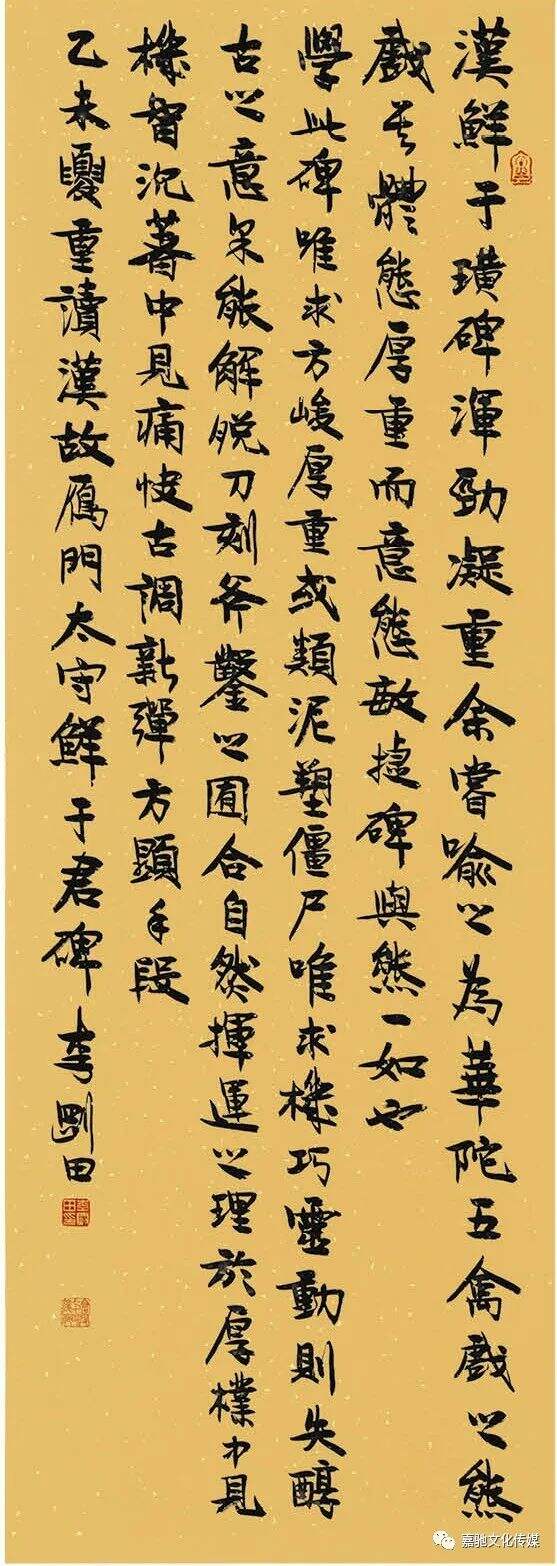 漢鮮于璜碑渾勁凝重余嘗喻之為華陀五禽戲之熊
戲其體態厚重而意態敏捷碑與熊一如也
學此碑唯求方峻厚重或類泥塑僵尸唯求機巧靈動則失醇
古之意果能解脫刀刻斧鑿之囿合自然揮運之理於厚樸中見
機智沉著中見痛快古調新彈方顯手段
乙未夏重讀漢故雁門太守鮮于君碑李剛田
嘉驰文化传媒